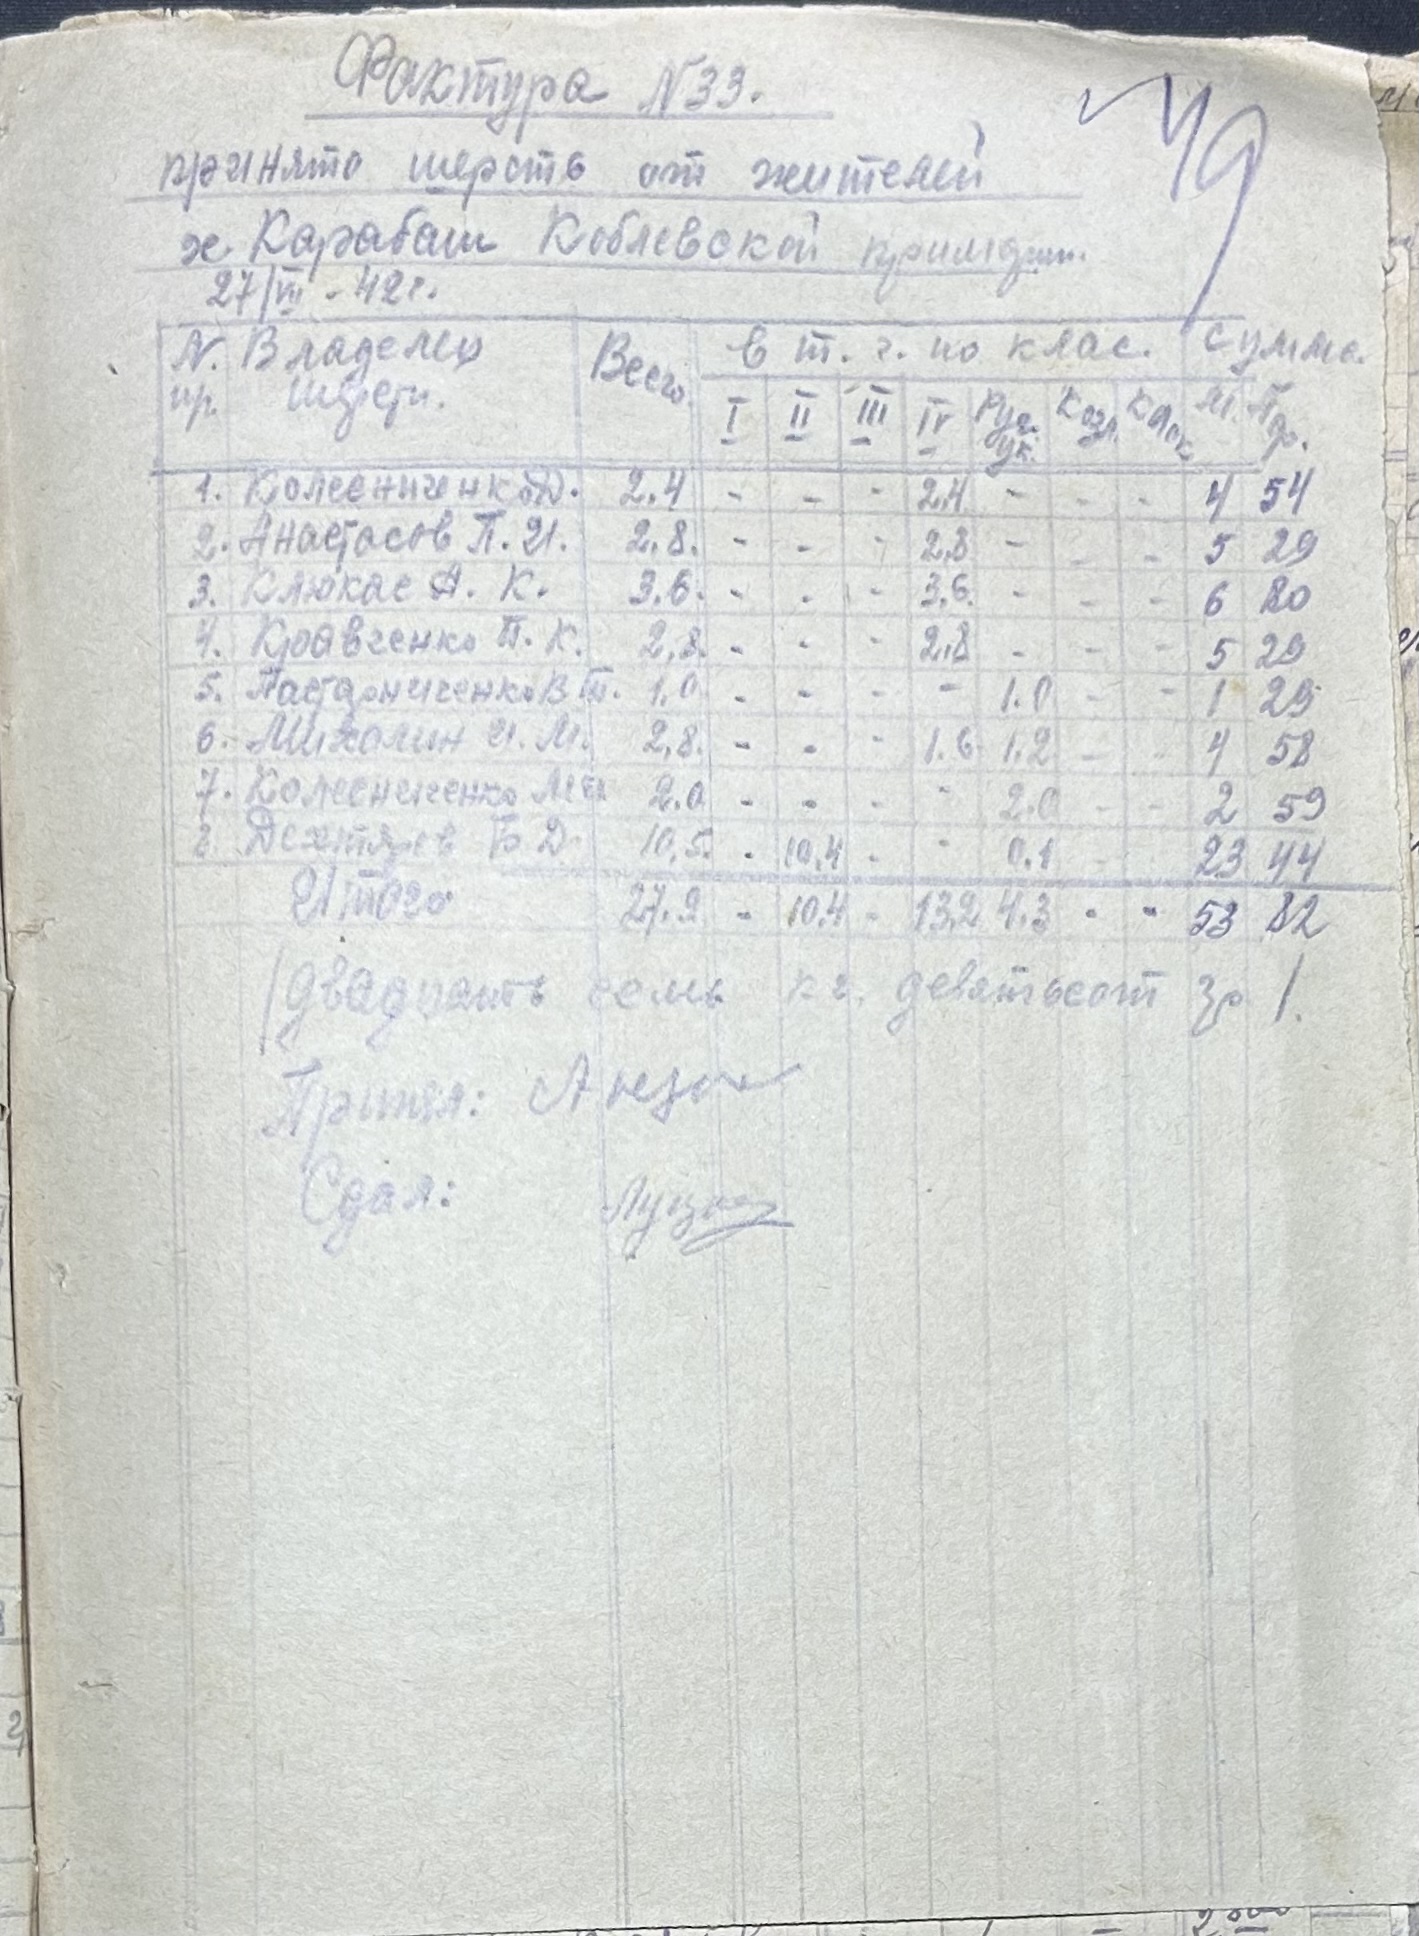 Фактура N33.
49
принято шерсть от жителей
х. Карабаш Коблевской
27/VII - 42 г.
N. Владелец Всего в т. ч. по клас. сумма
пр. шерсти. I II III IV козл. М. Пф.
1. Колесниченко Д. 2.4 - - - 2.4 - - - 4 54
2. Анастасов П. И. 2.8. - - - 2.8 - - - 5 29
3. Клюкас А. К. 3.6. - - - 3.6. - - - 6 80
4. Кравченко Т. К. 2.8. - - - 2.8 - - - 5 29
5. 1.0 - - - - 1.0 - - 1 29
6. Михалин И. М. 2.8. - - - 1.6 1.2 - - 4 58
7. Колесниченко 2.0 - - - - 2.0 - - 2 59
8. Дехтярев Б. Д. 10.5. - 10.4 - - 0.1 23 44
Итого 27.9 - 10.4 - 13.2 4.3 - - 53 82
/двадцать семь кг. девятьсот гр /.
Принял:
Сдал: